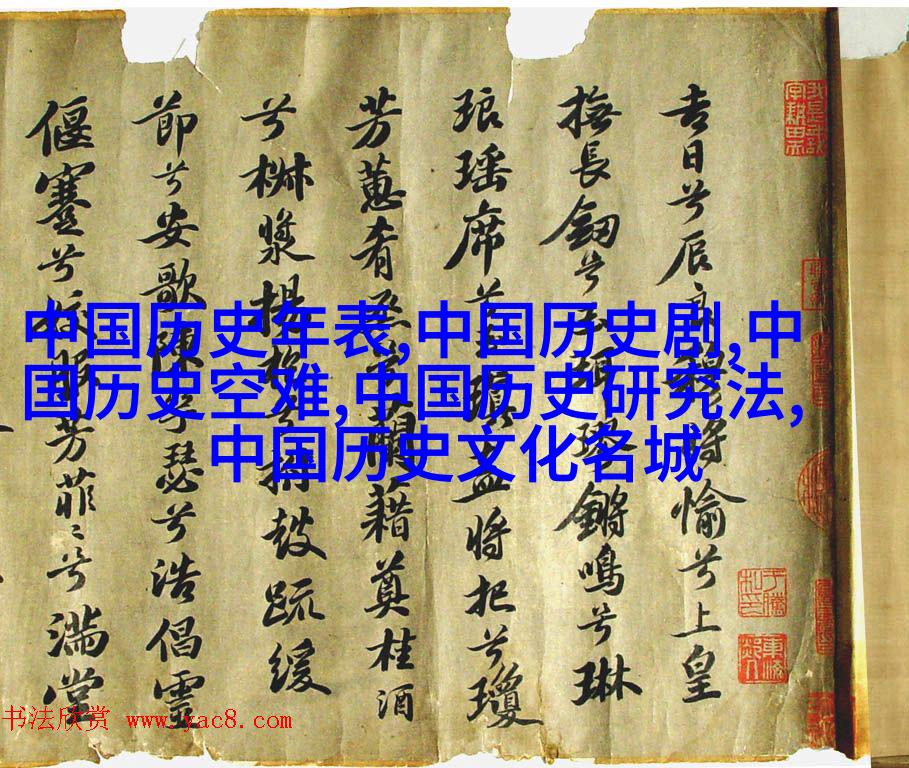 吉日兮辰良穆將愉兮上皇
撫長劒兮玉珥璆鏘鳴兮琳
琅瑶席兮玉瑱盍將把兮瓊
芳蕙肴蒸兮蘭藉奠桂酒
兮椒漿揚枹兮拊鼓疏緩
節兮安歌陳竽瑟兮浩倡靈
偃蹇兮姣服芳菲〻兮滿堂
中国历史年表,中国历史剧,中
国历史空难,中国历史研究法,
中国历史文化名城
书法欣赏 www.yac8.com